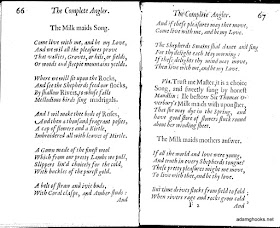 66 The Complete Angler.
The Milk maids Song.
Come live with me, and be my Love,
And we will all the pleasures prove
That vallies, Groves, or hils, or fields,
Or woods and steepie mountains yeelds.
Where we will sit upon the Rocks,
And see the Shepherds feed our flocks,
By shallow Rivers, to whose falls
Melodious birds sing madrigals.
And I will make thee beds of Roses,
And then a thousand fragrant posies,
A cap of flowers and a Kirtle,
Embroidered all with leaves of Mirtle.
A Gown made of the finest wool
Which from our pretty Lambs we pull,
Slippers lin'd choicely for the cold,
With buckles of the purest gold.
A belt of straw and ivie buds,
With Coral clasps, and Amber studs:
And
The Complete Angler. 67
And if these pleasures may thee move,
Come live with me, and be my Love.
The Shepherds Swains shal dance and sing
For thy delight each May morning:
If these delights thy mind may move,
Then live with me, and be my Love.
Via. Trust me Master, it is a choice
Song, and sweetly sung by honest
Maudlin: Ile bestow Sir Thomas
verbury's Milk maids wish upon her,
That she may dye in the Spring, and
have good store of flowers stuck round
about her winding sheet.
The Milk maids mothers answer.
If all the world and love were young,
And truth in every Shepherds tongue?
These pretty pleasures might me move,
To live with thee, and be thy love.
But time drives flocks from field to fold:
When rivers rage and rocks grow cold
F 2 And
adamghooks.net